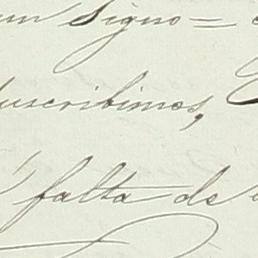 un Signo =
suscribimos,
falta de